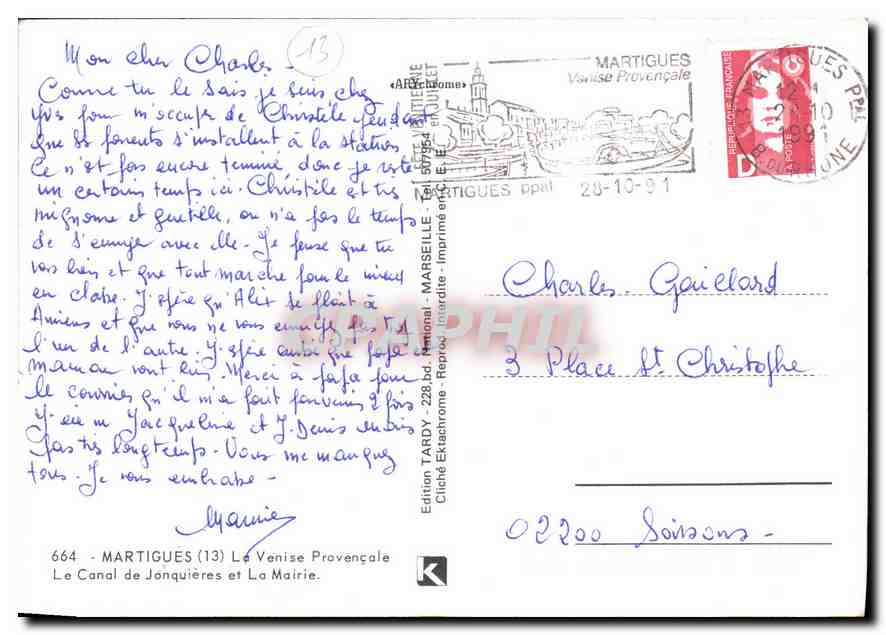 Mon cher Charles -
13
Comme tu le sais je suis chez
Yves pour m'occuper de Christèle pendant
que ses parents s'installent à la station
Ce n'est pas encore terminé, donc je reste
un certain temps ici. Christèle est très
mignonne et gentille, on n'a pas le temps
de s'ennuyer avec elle - Je pense que tu
vas bien et que tout marche pour le mieux
en classe. J'espère qu'Alix se plaît à
Amiens et que vous ne vous ennuyez pas trop
l'un de l'autre. J'espère aussi que papa et
maman vont bien. Merci à papa pour
le courrier qu'il m'a fait parvenir 2 fois
J'ai vu Jacqueline et J. Denis mais
pas très longtemps - Vous me manquez
tous. Je vous embrasse -
Mamie
664 - MARTIGUES (13) La Venise Provençale
Le Canal de Jonquières et La Mairie.
Edition TARDY - 228, bd. National - MARSEILLE - Tél. 507954
Cliché Ektachrome - Reprod. Interdite - Imprimé en C.E.E.
«ARYchrome»
K
EN JUILLET
MARTIGUES
Venise Provençale
MARTIGUES PPAL
28-10-91
REPUBLIQUE FRANÇAISE
D
LA POSTE
MARTIGUES PPAL
B. DU RHONE
Charles Gaillard
3 Place St. Christophe
02200 Soissons -
CPAPHIL